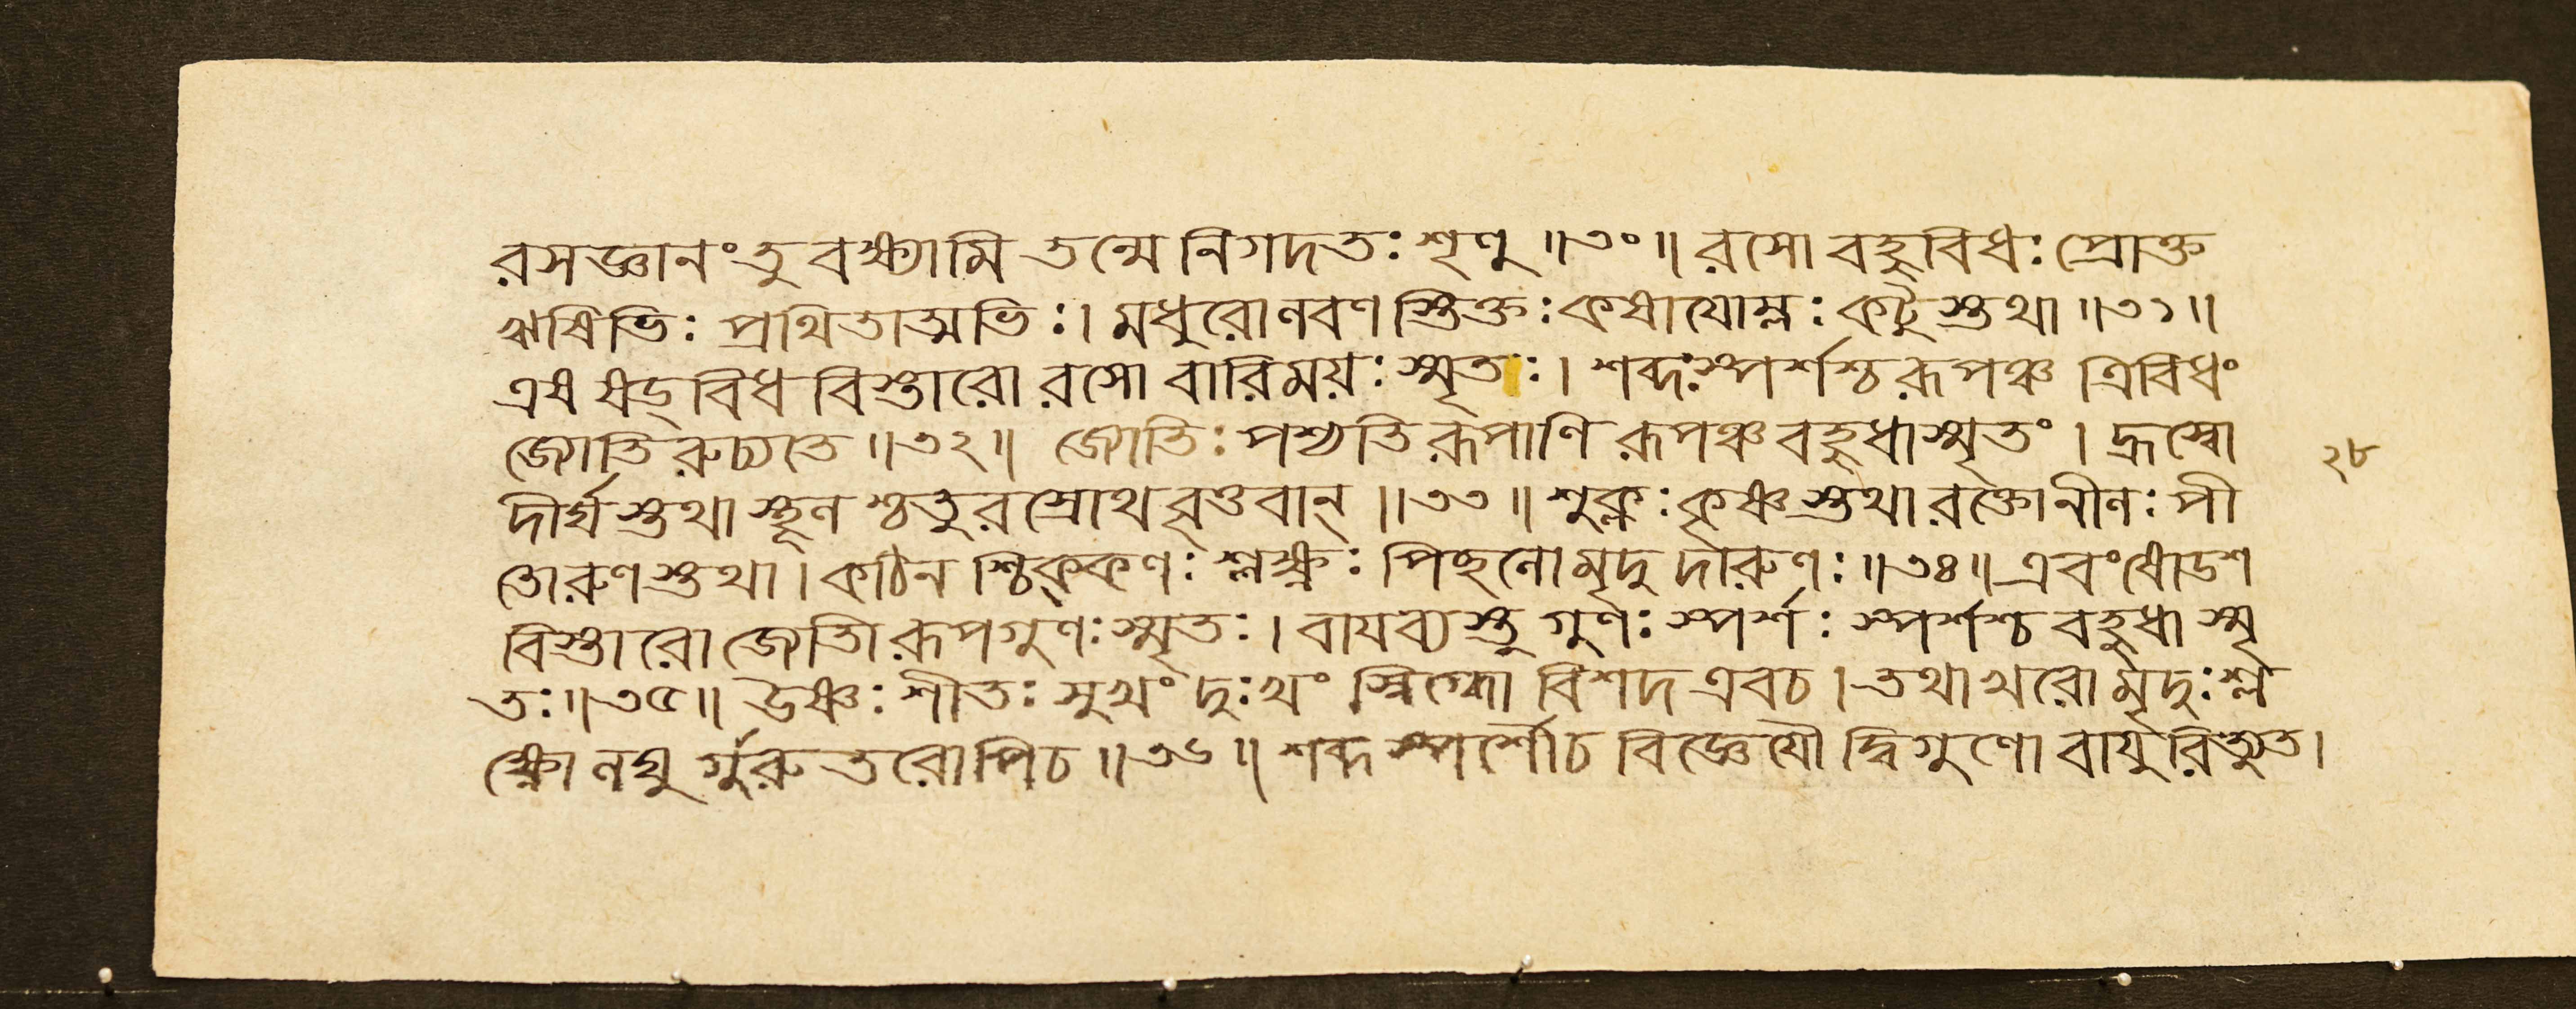 রসজ্ঞানংতু বক্ষ্যামি তন্মে নিগদতঃ শৃণু ॥৩০॥ রসো বহুবিধঃ প্রোক্ত
ঋষিভিঃ প্রথিতাত্মভিঃ। মধুরোণবণ স্তিক্তঃ কষাযোম্লঃ কটুস্তথা ॥৩১॥
এষ ষড়্বিধ বিস্তারো রসো বারিময়ঃ স্মৃতঃ। শব্দঃস্পর্শশ্চ রূপঞ্চ ত্রিবিধং
জ্যোতিরুচ্যতে ॥৩২॥ জ্যোতিঃ পশ্যতি রূপাণি রূপঞ্চ বহুধাস্মৃতং। হ্রস্বো
দীর্ঘ স্তথা স্থূন শ্চতুরস্রোথ বৃত্তবান্ ॥৩৩॥ শুক্লঃ কৃষ্ণস্তথা রক্তোনীনঃ পী
তোরুণ স্তথা। কঠিন শ্চিক্কণঃ শ্লক্ষ্ণঃ পিছনো মৃদু দারুণঃ ॥৩৪॥ এবংষোডশ
বিস্তারো জ্যোতিরূপগুণঃ স্মৃতঃ। বাযব্যস্তু গুণঃ স্পর্শঃ স্পর্শশ্চ বহুধা স্মৃ
তঃ ॥৩৫॥ উষ্ণঃ শীতঃ সুখং দুঃখং স্নিগ্ধো বিশদ এবচ। তথা খরো মৃদুঃ শ্ল
ক্ষ্ণোনঘু র্গুরুতরোপিচ ॥৩৬॥ শব্দ স্পর্শৌচ বিজ্ঞেযৌ দ্বিগুণো বাযুরিত্যুত।
২৮